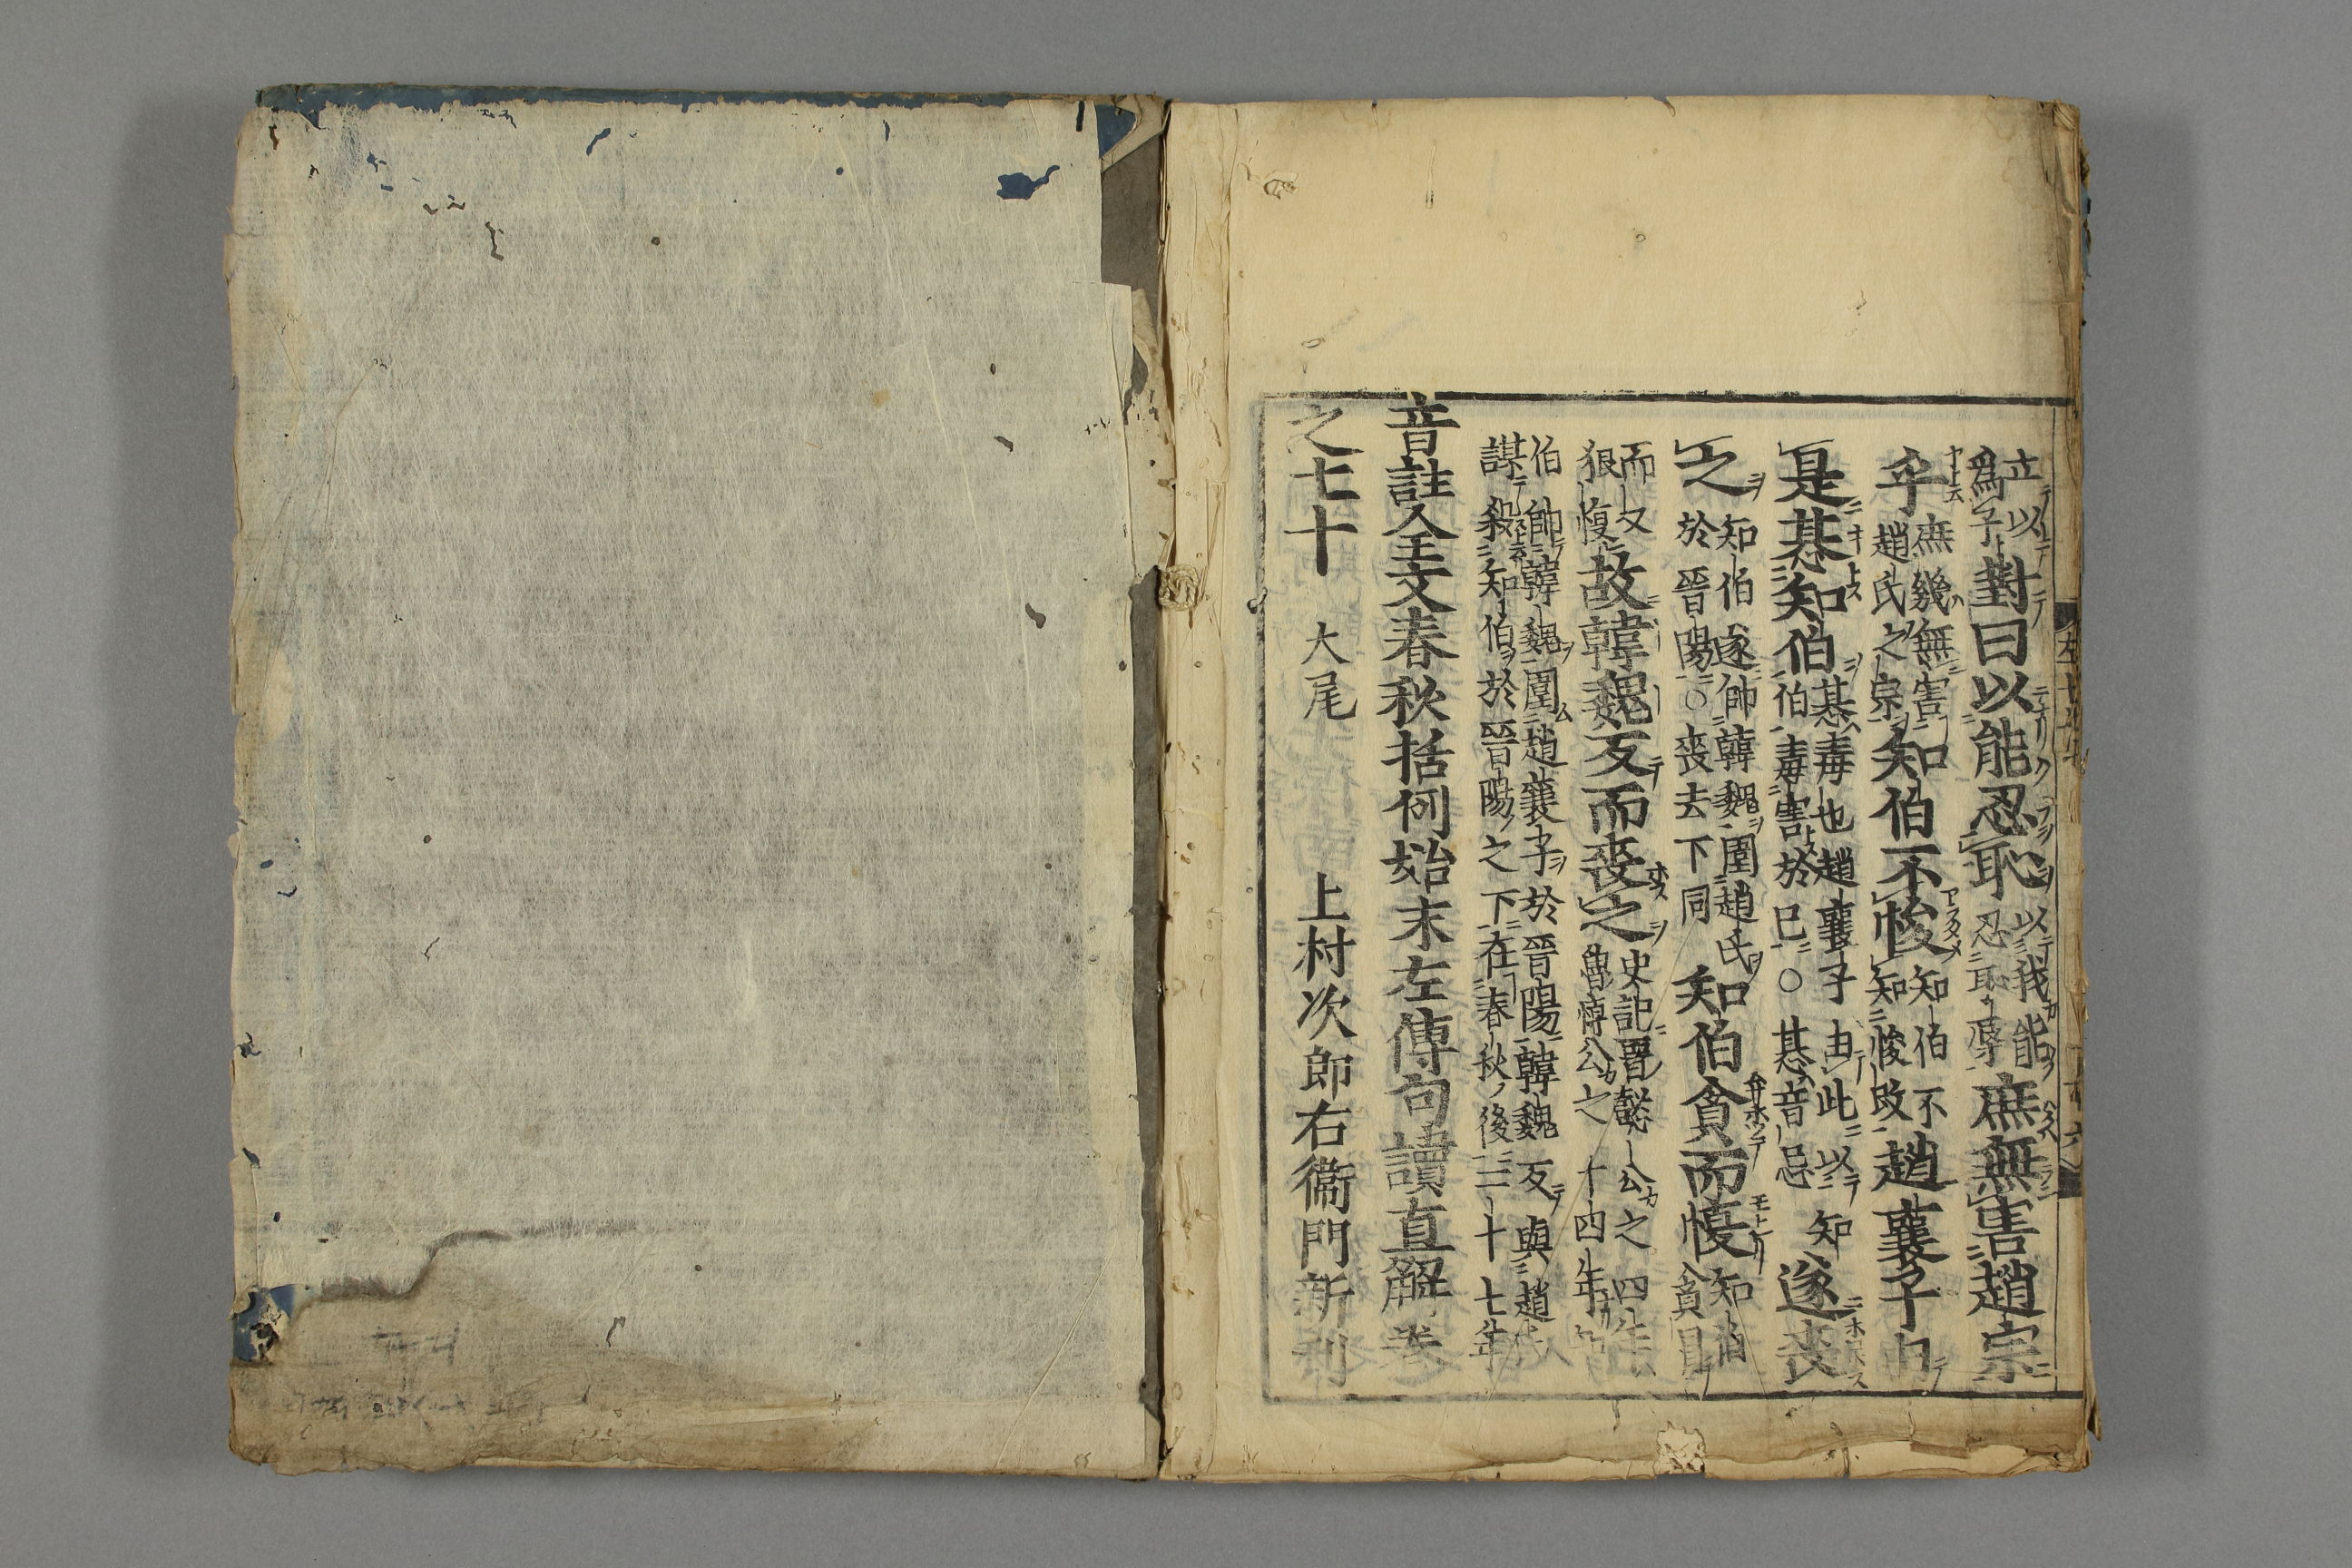 立以爲子對曰以能忍恥以我能忍恥辱庶無害趙宗
乎庶幾無害趙氏之宗知伯不悛知伯不知悛改趙襄子由
是惎知伯惎毒也趙襄子由此以知伯毒害於己○惎音忌遂喪
之知伯遂帥韓魏圍趙氏於晉陽○喪去下同知伯貪而愎知伯貪冒
而又狠愎故韓魏反而喪之史記晋懿公之四年魯悼公之十四年知
伯帥韓魏圍趙襄子於晉陽韓魏反與趙氏謀殺知伯於晉陽之下在春秋後二十七年
音註全文春秋括例始末左傳句讀直解卷
之七十 大尾 上村次郎右衞門新刊